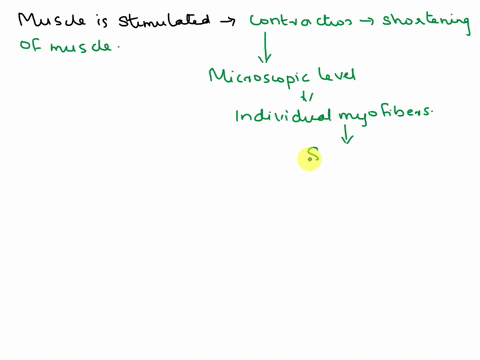 Muscle is stimulated → contraction → shortening
of muscle.
Microscopic level
Individual myofibers.
S